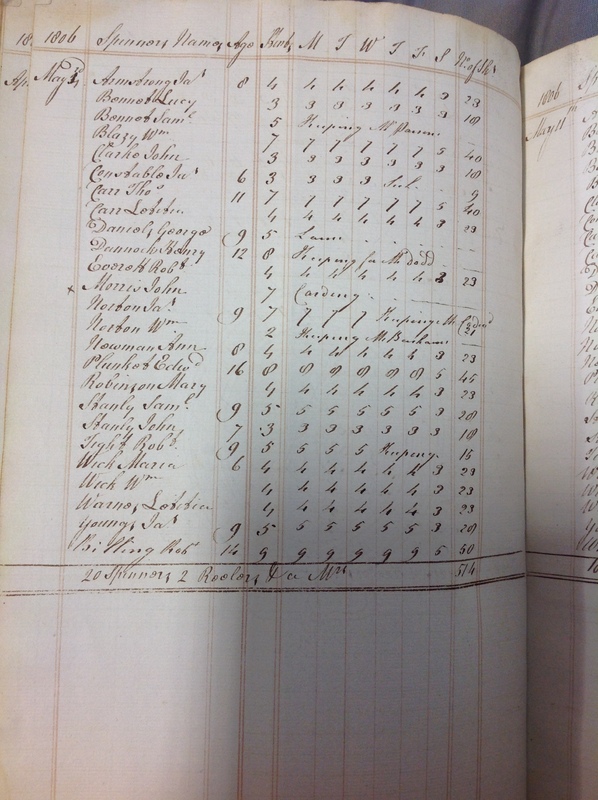 1806 Spinners Names Age Stint M T W T F S No. of Sks
May 3 Armstrong Jas 8 4 4 4 4 4 4 3 23
Bennet Lucy 3 3 3 3 3 3 3 18
Bennet Saml 5 Keeping Mr
Blazy Wm 7 7 7 7 7 7 5 40
Clarke John 3 3 3 3 3 3 3 18
Constable Jas 6 3 3 3 3 9
Carr Thos 11 7 7 7 7 7 7 5 40
Carr Letitia 4 4 4 4 4 4 3 23
Daniels George 9 5 Lame
Dannock Henry 12 8 Keeping for Mr Dodd
Everet Robt 4 4 4 4 4 4 3 23
x Morris John 7 Carding
Norton Jas 9 7 7 7 7 Keeping Mr 21
Norton Wm 2 Keeping Mr Barham
Newman Ann 8 4 4 4 4 4 4 3 23
Plunket Edwd 16 8 8 8 8 8 8 5 45
Robinson Mary 4 4 4 4 4 4 3 23
Stanly Saml 9 5 5 5 5 5 5 3 28
Stanly John 7 3 3 3 3 3 3 3 18
Tight Robt 9 5 5 5 5 Keeping 15
Wick Maria 6 4 4 4 4 4 4 3 23
Wick Wm 4 4 4 4 4 4 3 23
Warnes Letitia 4 4 4 4 4 4 3 23
Youngs Jas 9 5 5 5 5 5 5 3 28
Robt 14 9 9 9 9 9 9 5 50
20 Spinners 2 Reelers & a Mrs 514
1806
May 11